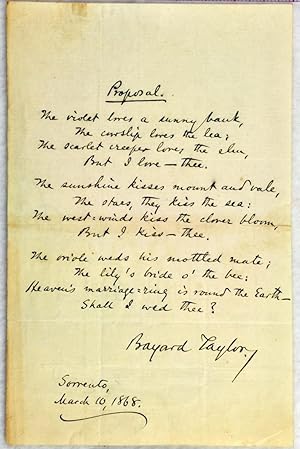 Proposal.
The violet loves a sunny bank,
The cowslip loves the lea;
The scarlet creeper loves the elm,
But I love — thee.
The sunshine kisses mount and vale,
The stars, they kiss the sea:
The west-winds kiss the clover bloom,
But I kiss — thee.
The oriole weds his mottled mate;
The lily's bride o' the bee;
Heaven's marriage-ring is round the Earth —
Shall I wed thee?
Bayard Taylor.
Sorrento,
March 10, 1868.